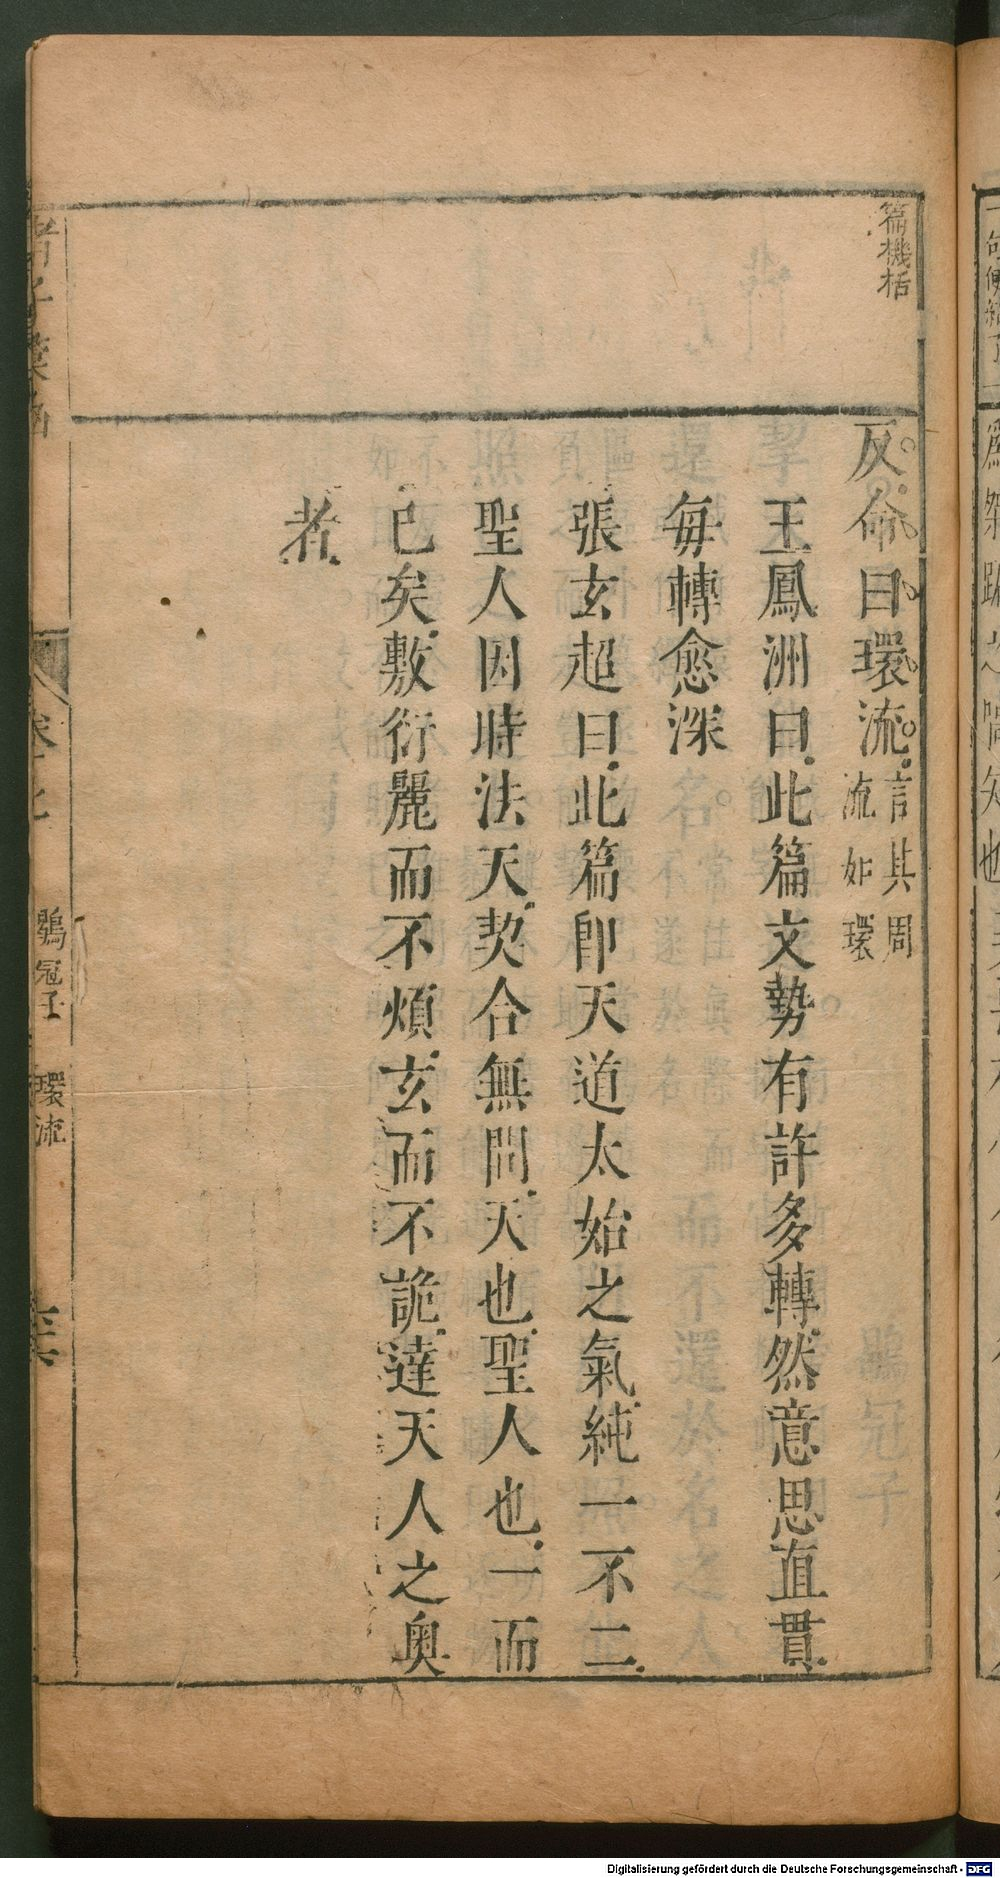 篇機括
反命曰環流言其周流如環
王鳳洲曰此篇文勢有許多轉然意思直貫
每轉愈深
張玄超曰此篇卽天道太始之氣純一不二
聖人因時法天契合無間天也聖人也一而
已矣敷衍麗而不煩玄而不詭達天人之奧
者
鶡冠子 環流
Digitalisierung gefördert durch die Deutsche Forschungsgemeinschaft - DFG